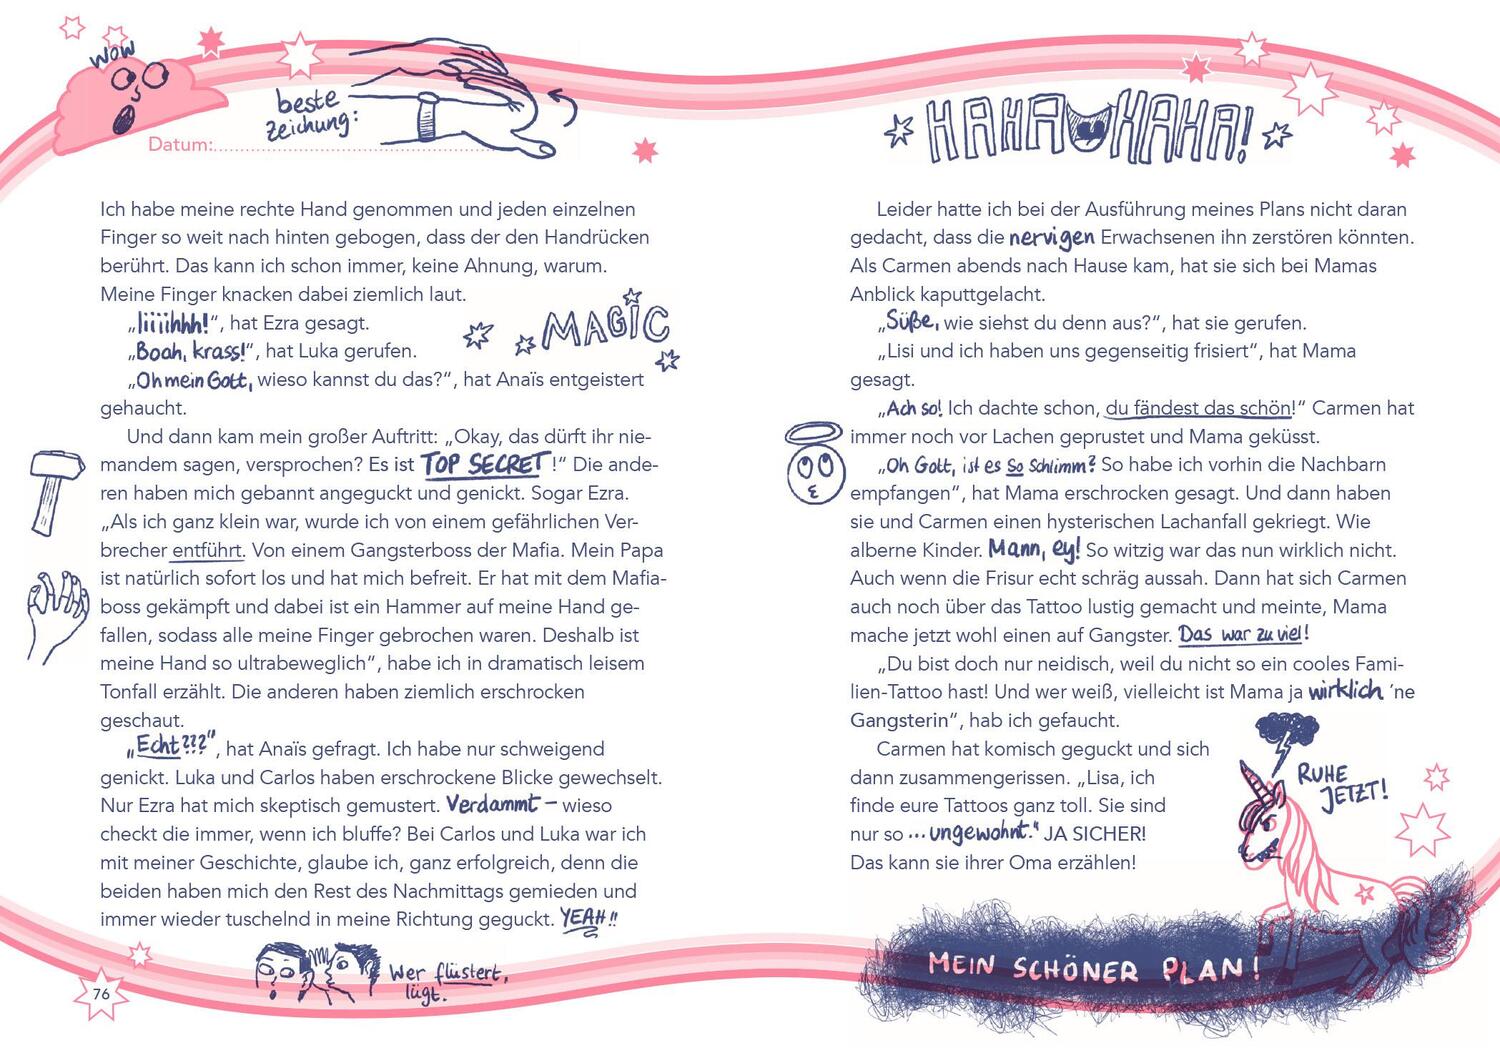 WOW
beste
Zeichung:
Datum:
Ich habe meine rechte Hand genommen und jeden einzelnen
Finger so weit nach hinten gebogen, dass der den Handrücken
berührt. Das kann ich schon immer, keine Ahnung, warum.
Meine Finger knacken dabei ziemlich laut.
„Iiiiihhh!“, hat Ezra gesagt.
„Boah, krass!“, hat Luka gerufen.
MAGIC
„Oh mein Gott, wieso kannst du das?“, hat Anaïs entgeistert
gehaucht.
Und dann kam mein großer Auftritt: „Okay, das dürft ihr nie-
mandem sagen, versprochen? Es ist TOP SECRET!“ Die ande-
ren haben mich gebannt angeguckt und genickt. Sogar Ezra.
„Als ich ganz klein war, wurde ich von einem gefährlichen Ver-
brecher entführt. Von einem Gangsterboss der Mafia. Mein Papa
ist natürlich sofort los und hat mich befreit. Er hat mit dem Mafia-
boss gekämpft und dabei ist ein Hammer auf meine Hand ge-
fallen, sodass alle meine Finger gebrochen waren. Deshalb ist
meine Hand so ultrabeweglich“, habe ich in dramatisch leisem
Tonfall erzählt. Die anderen haben ziemlich erschrocken
geschaut.
„Echt???“, hat Anaïs gefragt. Ich habe nur schweigend
genickt. Luka und Carlos haben erschrockene Blicke gewechselt.
Nur Ezra hat mich skeptisch gemustert. Verdammt – wieso
checkt die immer, wenn ich bluffe? Bei Carlos und Luka war ich
mit meiner Geschichte, glaube ich, ganz erfolgreich, denn die
beiden haben mich den Rest des Nachmittags gemieden und
immer wieder tuschelnd in meine Richtung geguckt. YEAH!!
Wer flüstert,
lügt.
76
HAHA HAHA!
Leider hatte ich bei der Ausführung meines Plans nicht daran
gedacht, dass die nervigen Erwachsenen ihn zerstören könnten.
Als Carmen abends nach Hause kam, hat sie sich bei Mamas
Anblick kaputtgelacht.
„Süße, wie siehst du denn aus?“, hat sie gerufen.
„Lisi und ich haben uns gegenseitig frisiert“, hat Mama
gesagt.
„Ach so! Ich dachte schon, du fändest das schön!“ Carmen hat
immer noch vor Lachen geprustet und Mama geküsst.
„Oh Gott, ist es so schlimm? So habe ich vorhin die Nachbarn
empfangen“, hat Mama erschrocken gesagt. Und dann haben
sie und Carmen einen hysterischen Lachanfall gekriegt. Wie
alberne Kinder. Mann, ey! So witzig war das nun wirklich nicht.
Auch wenn die Frisur echt schräg aussah. Dann hat sich Carmen
auch noch über das Tattoo lustig gemacht und meinte, Mama
mache jetzt wohl einen auf Gangster. Das war zu viel!
„Du bist doch nur neidisch, weil du nicht so ein cooles Fami-
lien-Tattoo hast! Und wer weiß, vielleicht ist Mama ja wirklich ’ne
Gangsterin“, hab ich gefaucht.
Carmen hat komisch geguckt und sich
dann zusammengerissen. „Lisa, ich
finde eure Tattoos ganz toll. Sie sind
nur so ...ungewohnt.“ JA SICHER!
Das kann sie ihrer Oma erzählen!
RUHE
JETZT!
MEIN SCHÖNER PLAN!